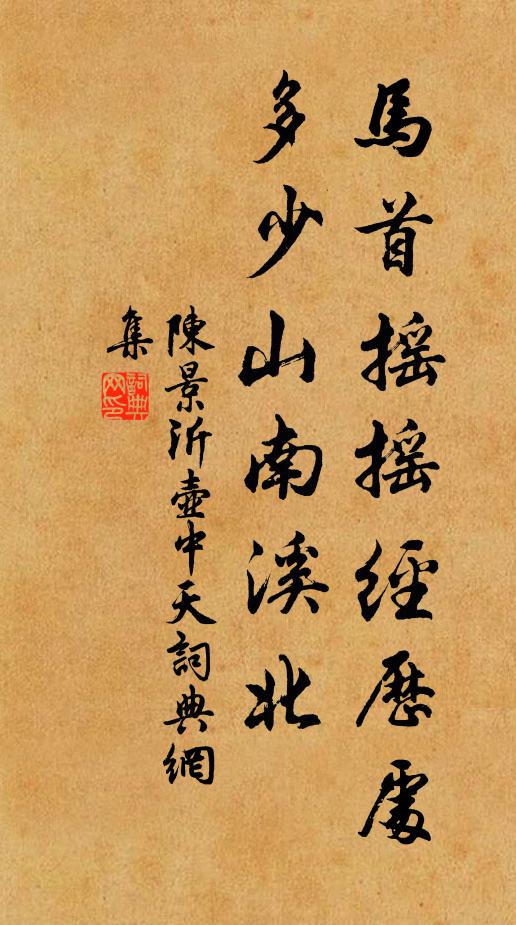 馬首搖搖經歷處
多少山南溪北
陳景沂壺中天詞典網
集
詞典網印